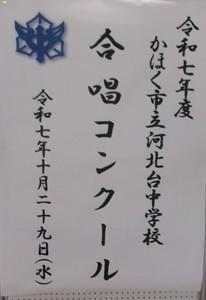 令和七年度
かほく市立河北台中学校
合唱コンクール
令和七年十月二十九日(水)